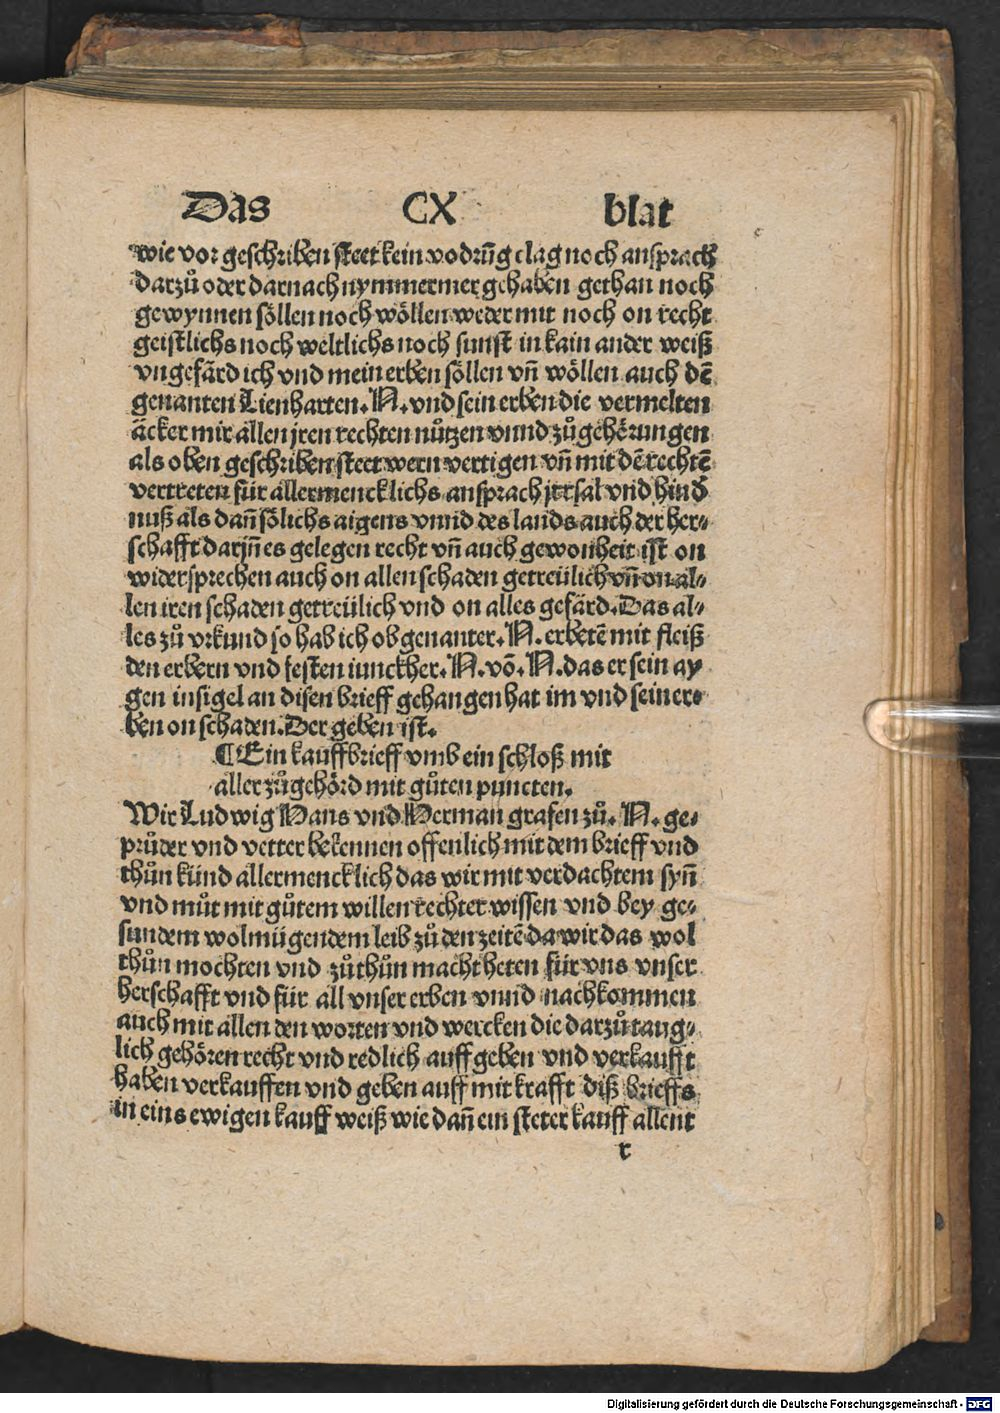 Das CX blat
wie vor geschriben steet kein vodrūg clag noch ansprach
darzů oder darnach nymmermer gehaben gethan noch
gewynnen söllen noch wöllen weder mit noch on recht
geistlichs noch weltlichs noch sunst in kain ander weiß
vngefärd ich vnd mein erben söllen vñ wöllen auch dē
genanten Lienharten. N. vnd sein erben die vermelten
äcker mit allen jren rechten nützen vnnd zůgehörungen
als oben geschriben steet wern vertigen vñ mit dē rechtē
vertreten für allermencklichs ansprach jrrsal vnd hind
nuß als dañ sölichs aigens vnnd des lands auch der her-
schafft darjñ es gelegen recht vñ auch gewonheit ist on
widersprechen auch on allen schaden getreülich vñ on al-
len iren schaden getreülich vnd on alles gefärd. Das al-
les zů vrkund so hab ich obgenanter. N. erbetē mit fleiß
den erbern vnd festen iunckher. N. vō. N. das er sein ay
gen insigel an disen brieff gehangen hat im vnd seiner-
ben on schaden. Der geben ist.
¶ Ein kauffbrieff vmb ein schloß mit
aller zůgehörd mit gůten puncten.
Wir Ludwig Hans vnd Herman grafen zů. N. ge-
průder vnd vetter bekennen offenlich mit dem brieff vnd
thůn künd allermencklich das wir mit verdachtem syñ
vnd můt mit gůtem willen rechter wissen vnd bey ge-
sundem wolmügendem leib zů den zeitē da wir das wol
thůn mochten vnd zů thůn macht heten für vns vnser
herschafft vnd für all vnser erben vnnd nachkommen
auch mit allen den worten vnd wercken die darzů taug-
lich gehören recht vnd redlich auff geben vnd verkaufft
haben verkauffen vnd geben auff mit krafft diß brieffs
in eins ewigen kauff weiß wie dañ ein steter kauff allent
r
Digitalisierung gefördert durch die Deutsche Forschungsgemeinschaft - DFG